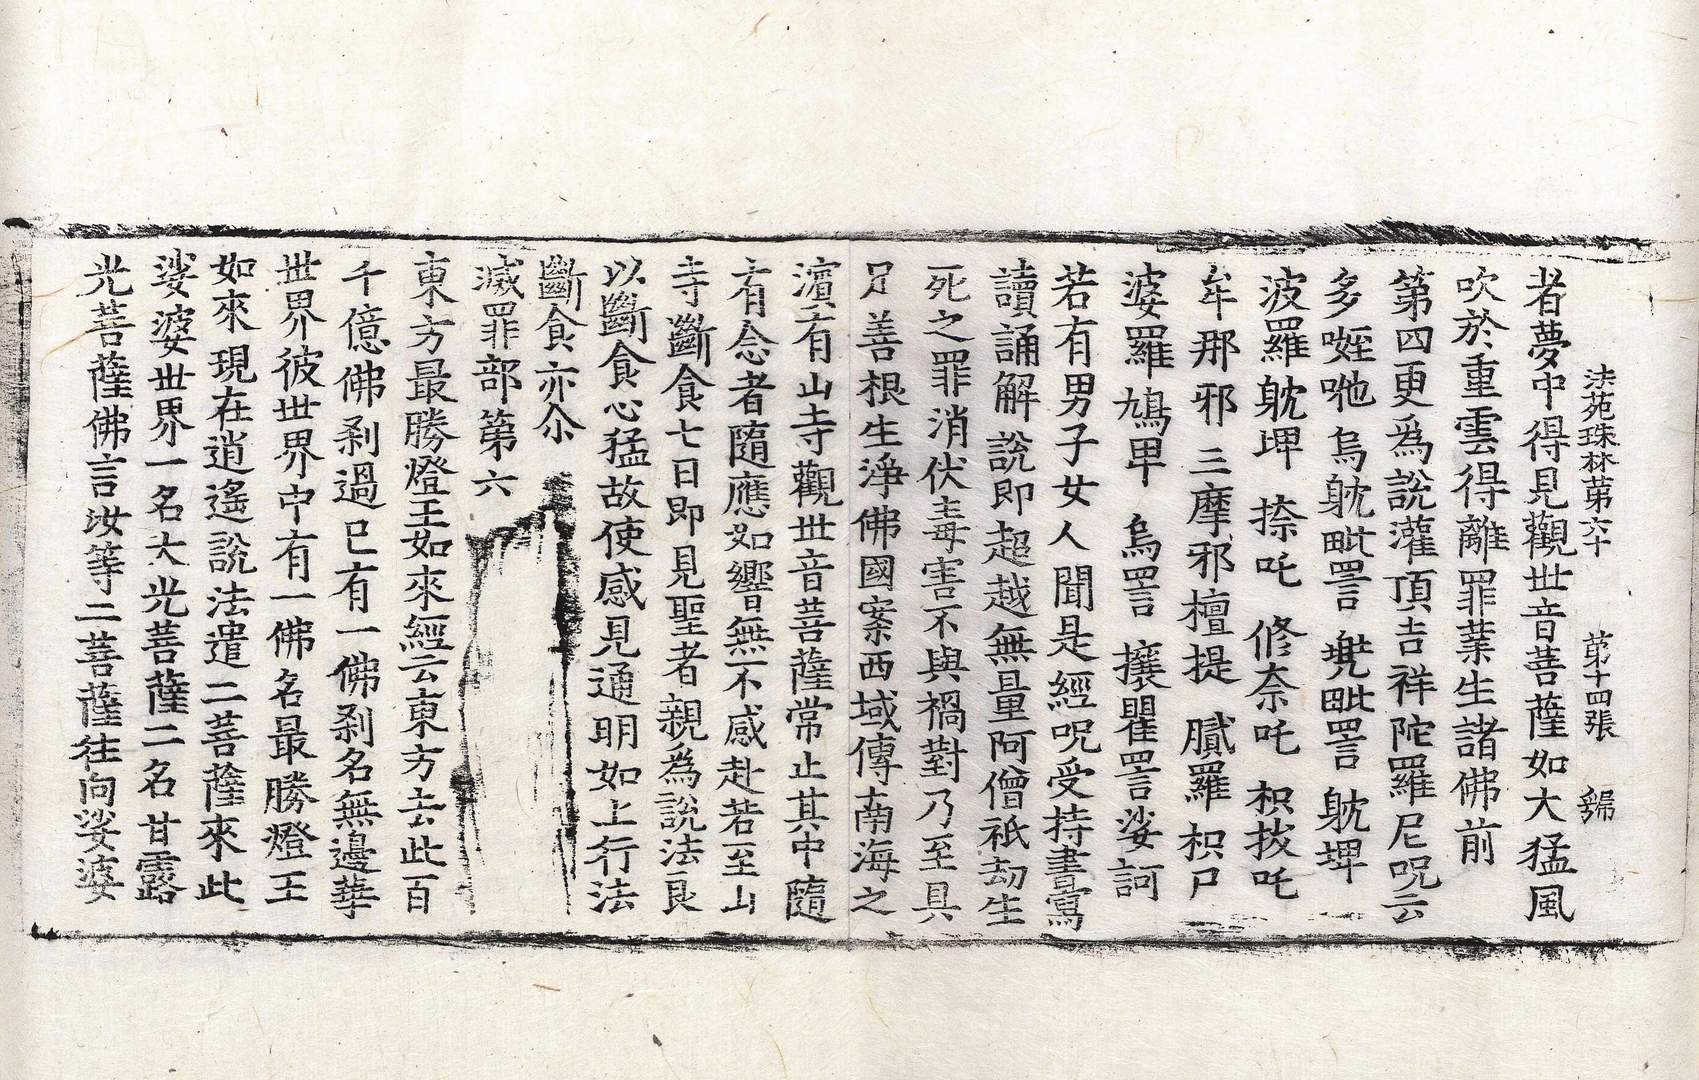 法苑珠林第六十 第十四張
者夢中得見觀世音菩薩如大猛風
吹於重雲得離罪業生諸佛前
第四更為說灌頂吉祥陀羅尼呪云
多咥哋 烏躭毗詈 毗詈 躭埤
波羅躭埤 捺吒 修奈吒 枳拔吒
牟那邪 三摩邪檀提 膩羅枳尸
婆羅鳩卑 烏詈 攘瞿詈娑訶
若有男子女人聞是經呪受持書寫
讀誦解說即超越無量阿僧祇劫生
死之罪消伏毒害不與禍對乃至具
足善根生淨佛國案西域傳南海之
濵有山寺觀世音菩薩常止其中隨
有念者隨應如響無不感赴若至山
寺斷食七日即見聖者親為說法良
以斷食心猛故使感見通明如上行法
斷食亦尒
滅罪部第六
東方最勝燈王如來經云東方去此百
千億佛刹過已有一佛刹名無邊華
世界彼世界中有一佛名最勝燈王
如來現在逍遙說法遣二菩薩來此
娑婆世界一名大光菩薩二名甘露
光菩薩佛言汝等二菩薩往向娑婆